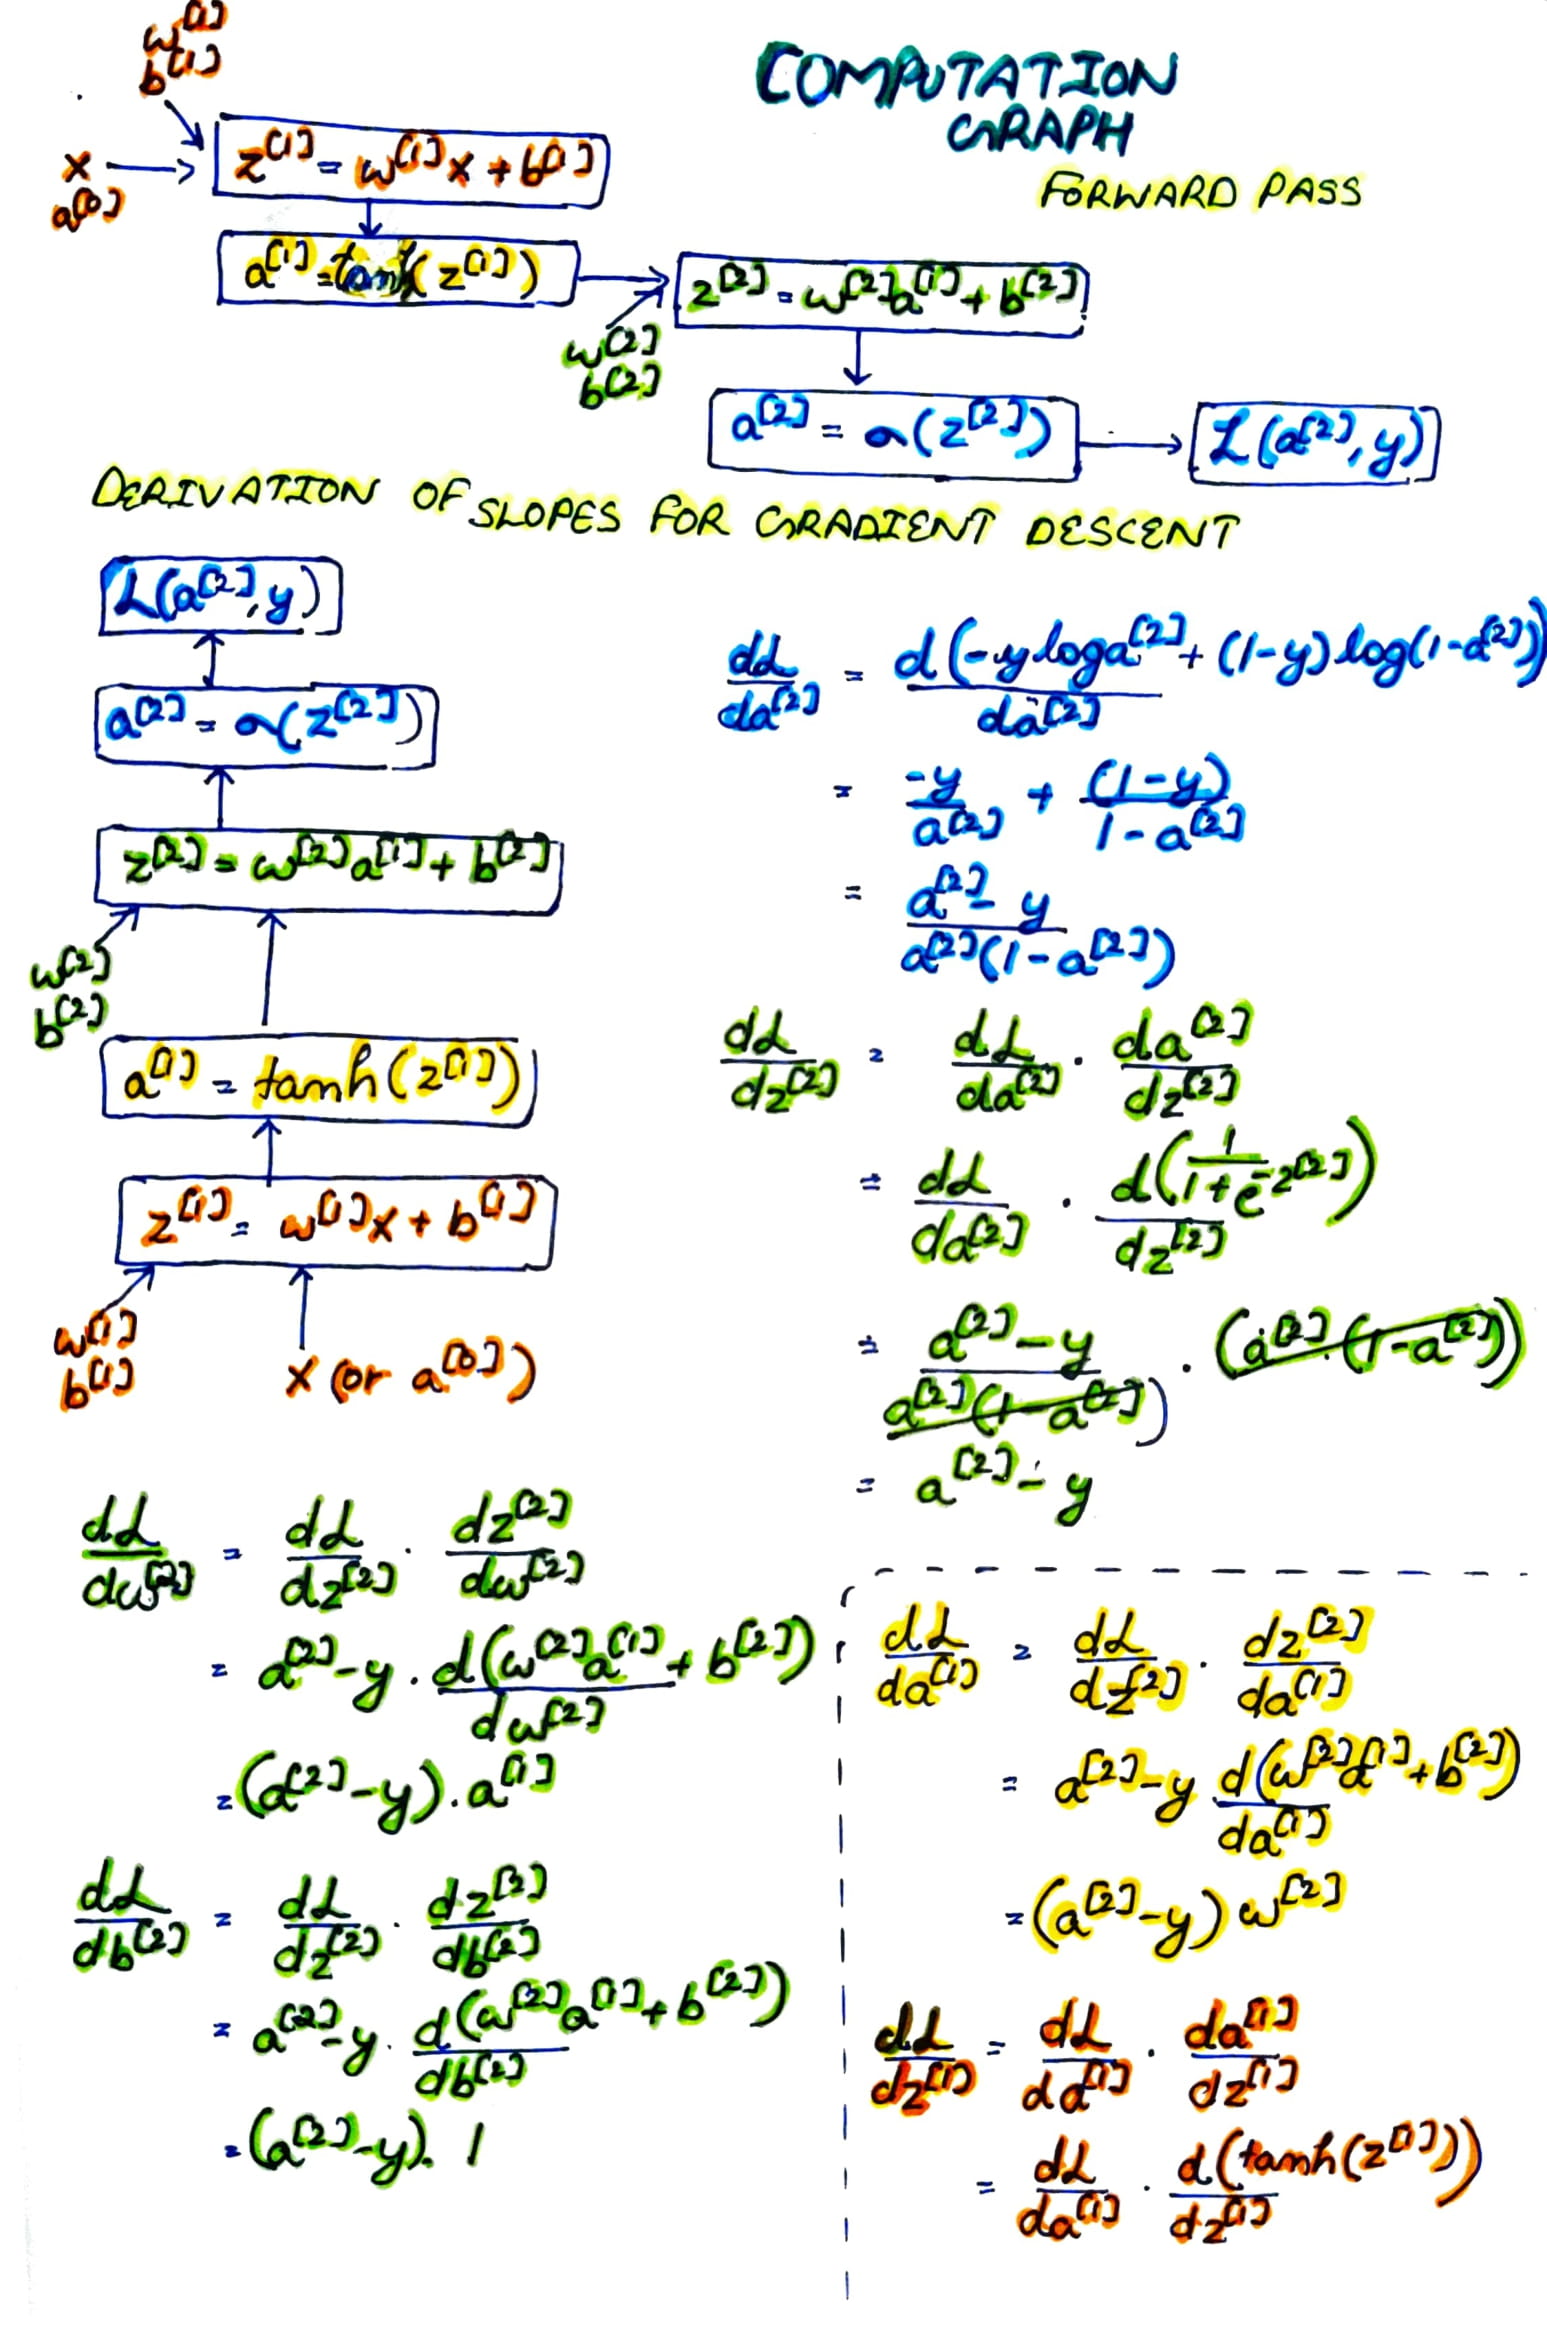 w^[1]
b^[1]
COMPUTATION
GRAPH
FORWARD PASS
x
a^[0]
z^[1] = w^[1]x + b^[1]
a^[1] = tanh(z^[1])
z^[2] = w^[2]a^[1] + b^[2]
w^[2]
b^[2]
a^[2] = σ(z^[2])
L(a^[2], y)
DERIVATION OF SLOPES FOR GRADIENT DESCENT
L(a^[2], y)
a^[2] = σ(z^[2])
z^[2] = w^[2]a^[1] + b^[2]
w^[2]
b^[2]
a^[1] = tanh(z^[1])
z^[1] = w^[1]x + b^[1]
w^[1]
b^[1]
x (or a^[0])
dL/da^[2] = d(-y log a^[2] + (1-y) log(1-a^[2]))/da^[2]
= -y/a^[2] + (1-y)/1-a^[2]
= a^[2] - y/a^[2](1-a^[2])
dL/dz^[2] = dL/da^[2] . da^[2]/dz^[2]
= dL/da^[2] . d(1/1+e^-z^[2])/dz^[2]
= a^[2] - y/a^[2](1-a^[2]) . (a^[2].(1-a^[2]))
= a^[2] - y
dL/dw^[2] = dL/dz^[2] . dz^[2]/dw^[2]
= a^[2] - y . d(w^[2]a^[1] + b^[2])/dw^[2]
= (a^[2] - y) . a^[1]
dL/db^[2] = dL/dz^[2] . dz^[2]/db^[2]
= a^[2] - y . d(w^[2]a^[1] + b^[2])/db^[2]
= (a^[2] - y). 1
dL/da^[1] = dL/dz^[2] . dz^[2]/da^[1]
= a^[2] - y d(w^[2]a^[1] + b^[2])/da^[1]
= (a^[2] - y) w^[2]
dL/dz^[1] = dL/da^[1] . da^[1]/dz^[1]
= dL/da^[1] . d(tanh(z^[1]))/dz^[1]